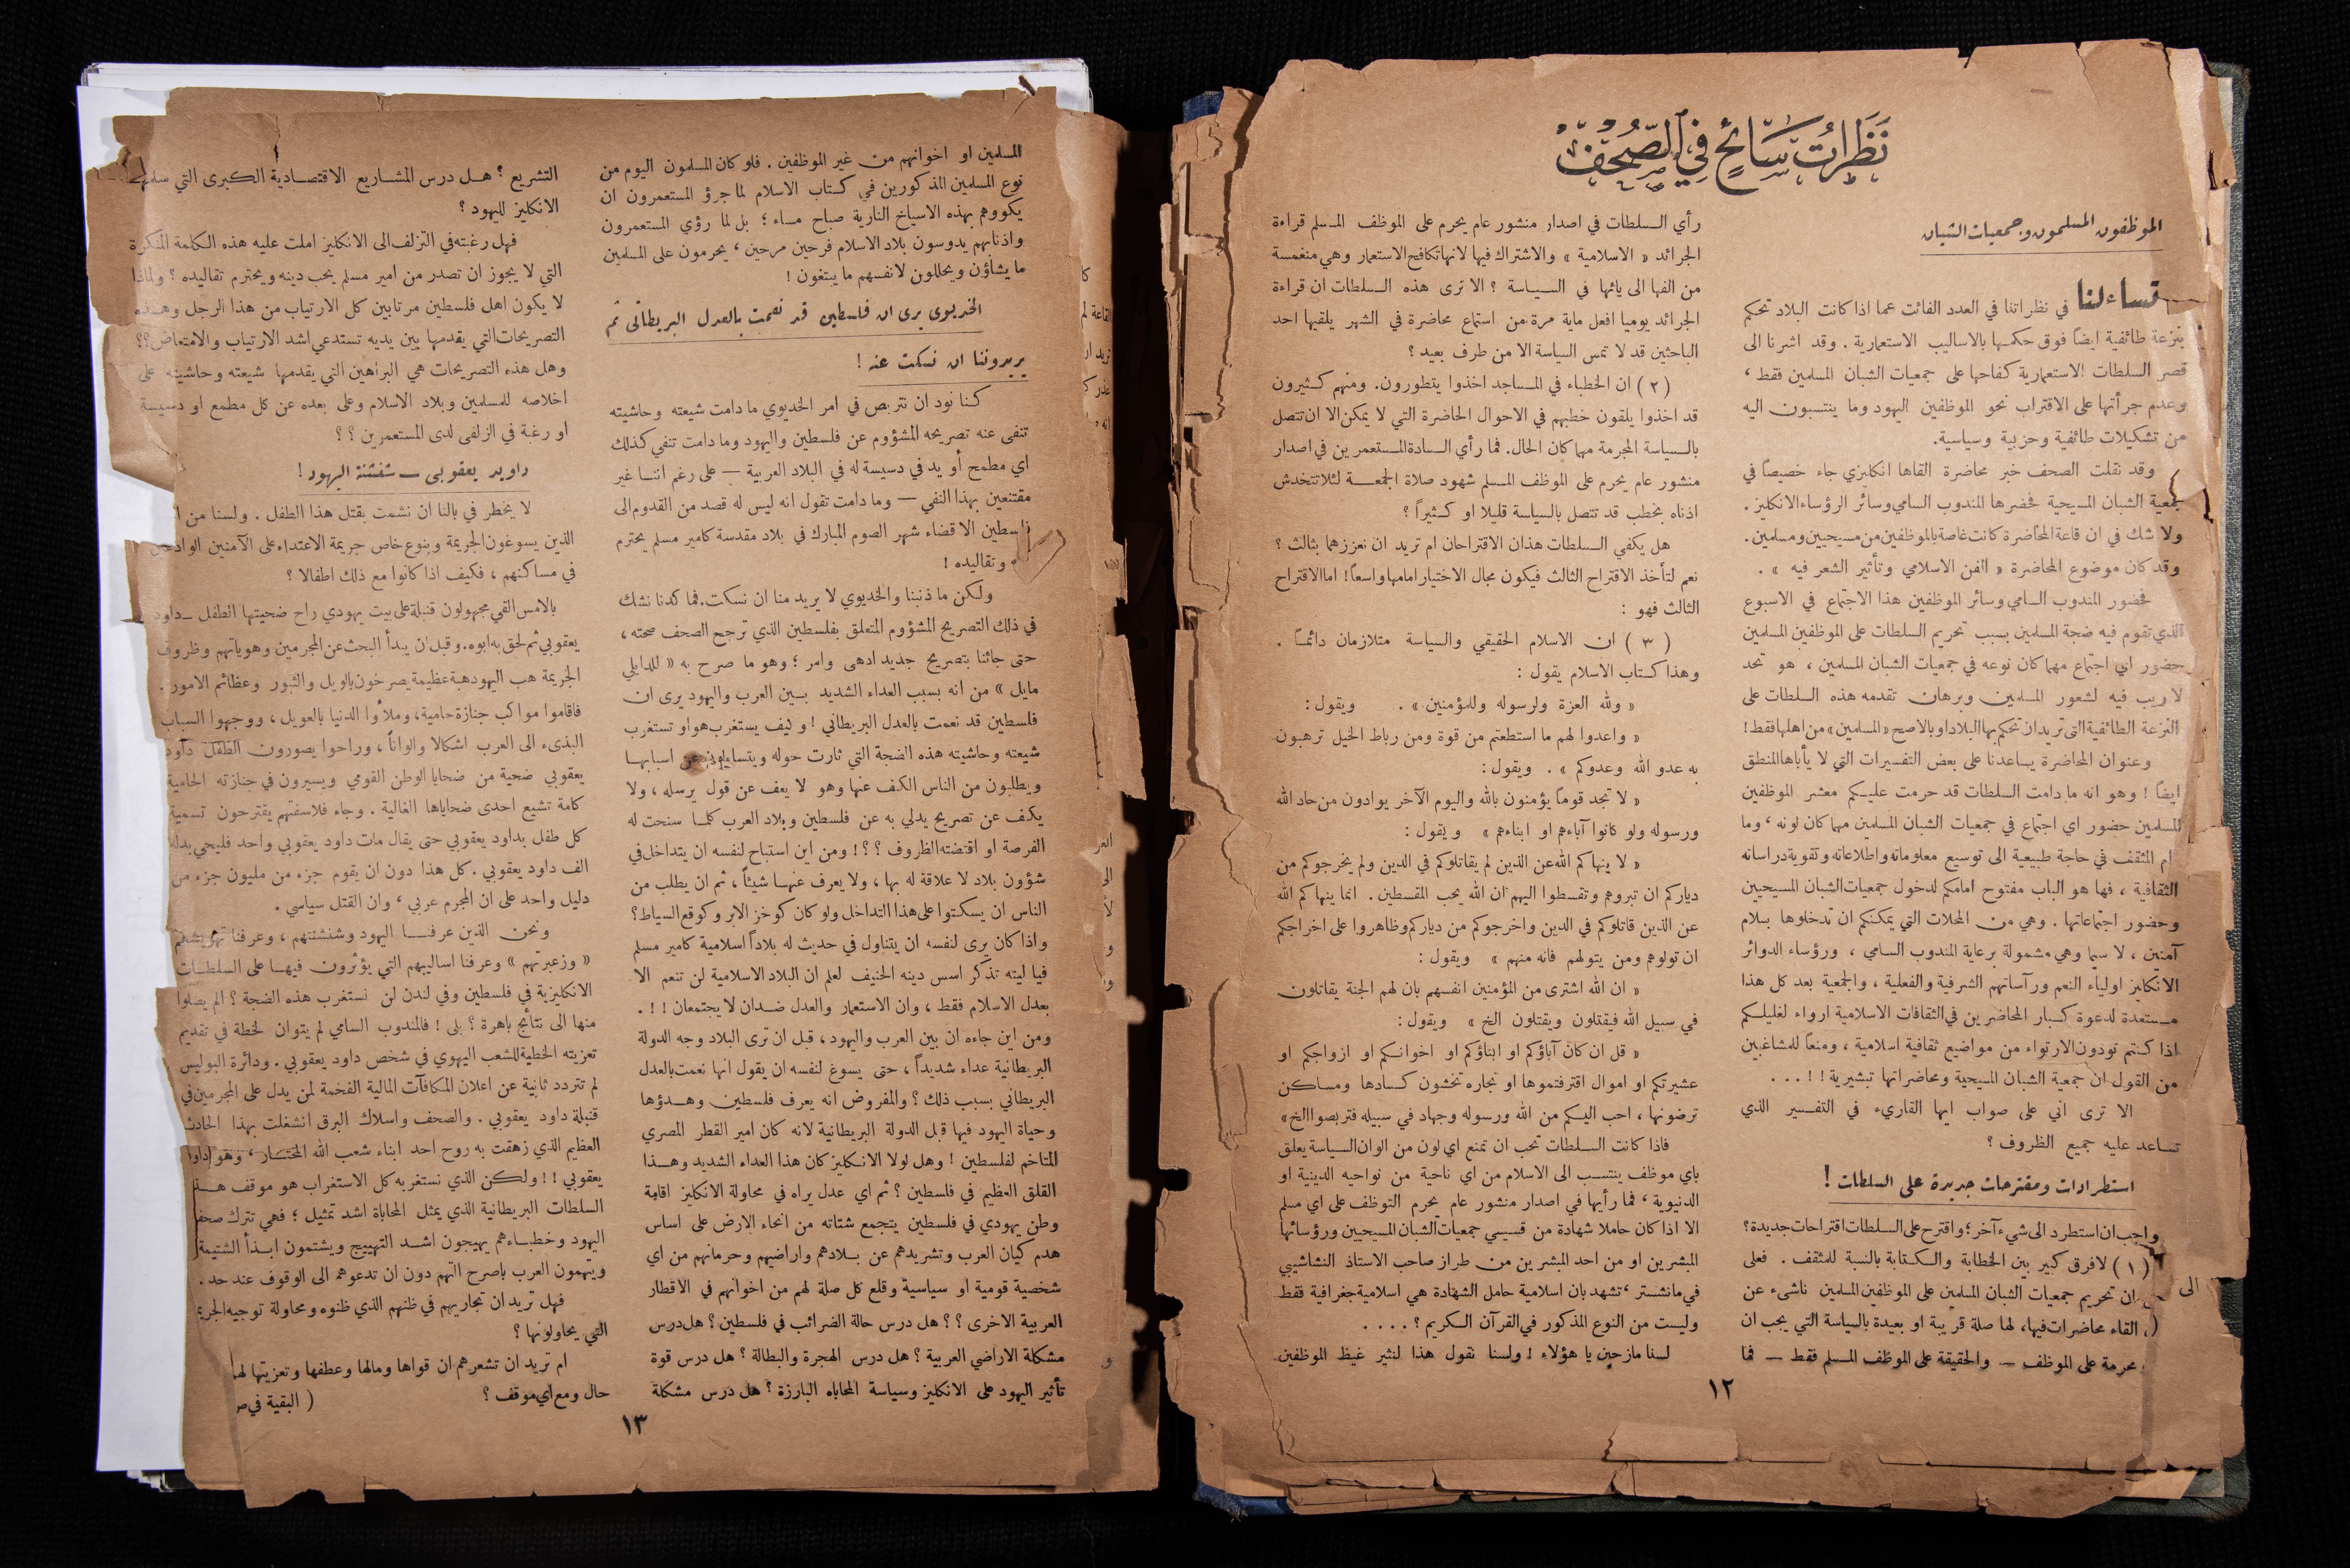 نَظَرَاتُ سَائِحٍ فِي الصُّحُفِ
الموظفون المسلمون وجمعيات الشبان
تساءلنا في نظراتنا في العدد الفائت عما اذا كانت البلاد تحكم
بنزعة طائفية ايضاً فوق حكمها بالاساليب الاستعمارية . وقد اشرنا الى
قصر السلطات الاستعمارية كفاحها على جمعيات الشبان المسلمين فقط ،
وعدم جرأتها على الاقتراب نحو الموظفين اليهود وما ينتسبون اليه
من تشكيلات طائفية وحزبية وسياسية.
وقد نقلت الصحف خبر محاضرة القاها انكليزي جاء خصيصاً في
جمعية الشبان المسيحية فحضرها المندوب السامي وسائر الرؤساء الانكليز .
ولا شك في ان قاعة المحاضرة كانت غاصة بالموظفين من مسيحيين ومسلمين.
وقد كان موضوع المحاضرة « الفن الاسلامي وتأثير الشعر فيه » .
فحضور المندوب السامي وسائر الموظفين هذا الاجتماع في الاسبوع
الذي تقوم فيه ضجة المسلمين بسبب تحريم السلطات على الموظفين المسلمين
حضور اي اجتماع مهما كان نوعه في جمعيات الشبان المسلمين ، هو تحد
لا ريب فيه لشعور المسلمين وبرهان تقدمه هذه السلطات على
النزعة الطائفية التي تريد ان تحكم بها البلاد او بالاصح « المسلمين » من اهلها فقط !
وعنوان المحاضرة يساعدنا على بعض التفسيرات التي لا يأباها المنطق
ايضاً ! وهو انه ما دامت السلطات قد حرمت عليكم معشر الموظفين
المسلمين حضور اي اجتماع في جمعيات الشبان المسلمين مهما كان لونه ، وما
ام المثقف في حاجة طبيعية الى توسيع معلوماته واطلاعاته وتقوية دراساته
الثقافية ، فها هو الباب مفتوح امامكم لدخول جمعيات الشبان المسيحيين
وحضور اجتماعاتها . وهي من المحلات التي يمكنكم ان تدخلوها بسلام
آمنين ، لا سيما وهي مشمولة برعاية المندوب السامي ، ورؤساء الدوائر
الانكليز اولياء النعم ورآساتهم الشرفية والفعلية ، والجمعية بعد كل هذا
مستعدة لدعوة كبار المحاضرين في الثقافات الاسلامية ارواء لغليلكم
اذا كنتم تودون الارتواء من مواضيع ثقافية اسلامية ، ومنعاً للمشاغبين
من القول ان جمعية الشبان المسيحية ومحاضراتها تبشيرية ! ! . . .
الا ترى اني على صواب ايها القاريء في التفسير الذي
تساعد عليه جميع الظروف ؟
استطرادات ومقترحات جديدة على السلطات !
واحب ان استطرد الى شيء آخر ؛ واقترح على السلطات اقتراحات جديدة ؟
( ١ ) لا فرق كبير بين الخطابة والكتابة بالنسبة للمثقف . فعلى
ان تحريم جمعيات الشبان المسلمين على الموظفين المسلمين ناشىء عن
القاء محاضرات فيها، لها صلة قريبة او بعيدة بالسياسة التي يجب ان
محرمة على الموظف — والحقيقة على الموظف المسلم فقط — فما
رأي السلطات في اصدار منشور عام يحرم على الموظف المسلم قراءة
الجرائد « الاسلامية » والاشتراك فيها لانها تكافح الاستعمار وهي منغمسة
من الفها الى يائها في السياسة ؟ الا ترى هذه السلطات ان قراءة
الجرائد يوميا افعل ماية مرة من استماع محاضرة في الشهر يلقيها احد
الباحثين قد لا تمس السياسة الا من طرف بعيد ؟
( ٢ ) ان الخطباء في المساجد اخذوا يتطورون. ومنهم كثيرون
قد اخذوا يلقون خطبهم في الاحوال الحاضرة التي لا يمكن الا ان تتصل
بالسياسة المجرمة مهما كان الحال. فما رأي السادة المستعمرين في اصدار
منشور عام يحرم على الموظف المسلم شهود صلاة الجمعة لئلا تتخدش
اذناه بخطب قد تتصل بالسياسة قليلا او كثيراً ؟
هل يكفي السلطات هذان الاقتراحان ام تريد ان نعززهما بثالث ؟
نعم لتأخذ الاقتراح الثالث فيكون مجال الاختيار امامها واسعاً! اما الاقتراح
الثالث فهو :
( ٣ ) ان الاسلام الحقيقي والسياسة متلازمان دائماً .
وهذا كتاب الاسلام يقول :
« ولله العزة ولرسوله وللمؤمنين » . ويقول :
« واعدوا لهم ما استطعتم من قوة ومن رباط الخيل ترهبون
به عدو الله وعدوكم » . ويقول :
« لا تجد قوماً يؤمنون بالله واليوم الآخر يوادون من حاد الله
ورسوله ولو كانوا آباءهم او ابناءهم » ويقول :
« لا ينهاكم الله عن الذين لم يقاتلوكم في الدين ولم يخرجوكم من
دياركم ان تبروهم وتقسطوا اليهم ان الله يحب المقسطين . انما ينهاكم الله
عن الذين قاتلوكم في الدين واخرجوكم من دياركم وظاهروا على اخراجكم
ان تولوهم ومن يتولهم فانه منهم » ويقول :
« ان الله اشترى من المؤمنين انفسهم بان لهم الجنة يقاتلون
في سبيل الله فيقتلون ويقتلون الخ » ويقول :
« قل ان كان آباؤكم او ابناؤكم او اخوانكم او ازواجكم او
عشيرتكم او اموال اقترفتموها او تجاره تخشون كسادها ومساكن
ترضونها ، احب اليكم من الله ورسوله وجهاد في سبيله فتربصوا الخ »
فاذا كانت السلطات تحب ان تمنع اي لون من الوان السياسة يعلق
باي موظف ينتسب الى الاسلام من اي ناحية من نواحيه الدينية او
الدنيوية ، فما رأيها في اصدار منشور عام يحرم التوظف على اي مسلم
الا اذا كان حاملا شهادة من قسيسي جمعيات الشبان المسيحيين ورؤسائها
المبشرين او من احد المبشرين من طراز صاحب الاستاذ النشاشيبي
في مانشستر ، تشهد بان اسلامية حامل الشهادة هي اسلامية جغرافية فقط
وليست من النوع المذكور في القرآن الكريم ؟ . . . .
لسنا مازحين يا هؤلاء ! ولسنا نقول هذا لنثير غيظ الموظفين
الى
١٢
المسلمين او اخوانهم من غير الموظفين . فلو كان المسلمون اليوم من
نوع المسلمين المذكورين في كتاب الاسلام لما جرؤ المستعمرون ان
يكووهم بهذه الاسياخ النارية صباح مساء ؛ بل لما رؤي المستعمرون
واذنابهم يدوسون بلاد الاسلام فرحين مرحين ، يحرمون على المسلمين
ما يشاؤن ويحللون لانفسهم ما يبتغون !
الخديوي يرى ان فلسطين قد نعمت بالعدل البريطاني ثم
يريدوننا ان نسكت عنه !
كنا نود ان نتربص في امر الخديوي ما دامت شيعته وحاشيته
تنفى عنه تصريحه المشؤوم عن فلسطين واليهود وما دامت تنفي كذلك
اي مطمح أو يد في دسيسة له في البلاد العربية — على رغم اننا غير
مقتنعين بهذا النفي — وما دامت تقول انه ليس له قصد من القدوم الى
فلسطين الا قضاء شهر الصوم المبارك في بلاد مقدسة كامير مسلم يحترم
وتقاليده !
ولكن ما ذنبنا والخديوي لا يريد منا ان نسكت. فما كدنا نشك
في ذلك التصريح المشؤوم المتعلق بفلسطين الذي ترجح الصحف صحته ،
حتى جائنا بتصريح جديد ادهى وامر ؛ وهو ما صرح به « للدايلي
مايل » من انه بسبب العداء الشديد بين العرب واليهود يرى ان
فلسطين قد نعمت بالعدل البريطاني ! و ليف يستغرب هو او تستغرب
شيعته وحاشيته هذه الضجة التي ثارت حوله ويتساءلون عن اسبابها
ويطلبون من الناس الكف عنها وهو لا يعف عن قول يرسله ، ولا
يكف عن تصريح يدلي به عن فلسطين وبلاد العرب كلما سنحت له
الفرصة او اقتضته الظروف ؟ ؟ ! ومن اين استباح لنفسه ان يتداخل في
شؤون بلاد لا علاقة له بها ، ولا يعرف عنها شيئاً ، ثم ان يطلب من
الناس ان يسكتوا على هذا التداخل ولو كان كوخز الابر وكوقع السياط ؟
واذا كان يرى لنفسه ان يتناول في حديث له بلاداً اسلامية كامير مسلم
فيا ليته تذكر اسس دينه الحنيف لعلم ان البلاد الاسلامية لن تنعم الا
بعدل الاسلام فقط ، وان الاستعمار والعدل ضدان لا يجتمعان ! ! .
ومن اين جاءه ان بين العرب واليهود ، قبل ان ترى البلاد وجه الدولة
البريطانية عداء شديداً ، حتى يسوغ لنفسه ان يقول انها نعمت بالعدل
البريطاني بسبب ذلك ؟ والمفروض انه يعرف فلسطين وهدؤها
وحياة اليهود فيها قبل الدولة البريطانية لانه كان امير القطر المصري
المتاخم لفلسطين ! وهل لولا الانكليز كان هذا العداء الشديد وهذا
القلق العظيم في فلسطين ؟ ثم اي عدل يراه في محاولة الانكليز اقامة
وطن يهودي في فلسطين يتجمع شتاته من انحاء الارض على اساس
هدم كيان العرب وتشريدهم عن بلادهم واراضيهم وحرمانهم من اي
شخصية قومية او سياسية وقلع كل صلة لهم من اخوانهم في الاقطار
العربية الاخرى ؟ ؟ هل درس حالة الضرائب في فلسطين ؟ هل درس
مشكلة الاراضي العربية ؟ هل درس الهجرة والبطالة ؟ هل درس قوة
تأثير اليهود على الانكليز وسياسة المحاباه البارزة ؟ هل درس مشكلة
التشريع ؟ هل درس المشاريع الاقتصادية الكبرى التي سلمها
الانكليز لليهود ؟
فهل رغبته في التزلف الى الانكليز املت عليه هذه الكلمة المنكرة
التي لا يجوز ان تصدر من امير مسلم يحب دينه ويحترم تقاليده ؟ ولماذا
لا يكون اهل فلسطين مرتابين كل الارتياب من هذا الرجل وهذه
التصريحات التي يقدمها بين يديه تستدعي اشد الارتياب والامتعاض ؟؟
وهل هذه التصريحات هي البراهين التي يقدمها شيعته وحاشيته على
اخلاصه للمسلمين وبلاد الاسلام وعلى بعده عن كل مطمع او دسيسة
او رغبة في الزلفى لدى المستعمرين ؟ ؟
داويد يعقوبي — شنشنة اليهود !
لا يخطر في بالنا ان نشمت بقتل هذا الطفل . ولسنا من
الذين يسوغون الجريمة وبنوع خاص جريمة الاعتداء على الآمنين الوادعين
في مساكنهم ، فكيف اذا كانوا مع ذلك اطفالا ؟
بالامس القي مجهولون قنبلة على بيت يهودي راح ضحيتها الطفل — داود
يعقوبي ثم لحق به ابوه. وقبل ان يبدأ البحث عن المجرمين وهوياتهم وظروف
الجريمة هب اليهود هبة عظيمة يصرخون بالويل والثبور وعظائم الامور .
فاقاموا مواكب جنازة حامية ، وملأوا الدنيا بالعويل ، ووجهوا السباب
البذىء الى العرب اشكالا والواناً ، وراحوا يصورون الطفل داود
يعقوبي ضحية من ضحايا الوطن القومي ويسيرون في جنازته الحامية
كامة تشيع احدى ضحاياها الغالية . وجاء فلاسفتهم يقترحون تسمية
كل طفل بداود يعقوبي حتى يقال مات داود يعقوبي واحد فليحي بدله
الف داود يعقوبي . كل هذا دون ان يقوم جزء من مليون جزء من
دليل واحد على ان المجرم عربي ، وان القتل سياسي .
ونحن الذين عرفنا اليهود وشنشنتهم ، وعرفنا تهويشهم
« وزعبرتهم » وعرفنا اساليبهم التي يؤثرون فيها على السلطات
الانكليزية في فلسطين وفي لندن لن نستغرب هذه الضجة ؟ الم يصلوا
منها الى نتائج باهرة ؟ بلى ! فالمندوب السامي لم يتوان لحظة في تقديم
تعزيته الخطية للشعب اليهوي في شخص داود يعقوبي . ودائرة البوليس
لم تتردد ثانية عن اعلان المكافآت المالية الفخمة لمن يدل على المجرمين في
قنبلة داود يعقوبي . والصحف واسلاك البرق انشغلت بهذا الحادث
العظيم الذي زهقت به روح احد ابناء شعب الله المختار ، وهو داود
يعقوبي ! ! ولكن الذي نستغربه كل الاستغراب هو موقف هذه
السلطات البريطانية الذي يمثل المحاباة اشد تمثيل ؛ فهي تترك صحف
اليهود وخطباءهم يهيجون اشد التهييج ويشتمون ابذأ الشتيمة
ويتهمون العرب باصرح التهم دون ان تدعوهم الى الوقوف عند حد .
فهل تريد ان تجاريهم في ظنهم الذي ظنوه ومحاولة توجيه الجريمة
التي يحاولونها ؟
ام تريد ان تشعرهم ان قواها ومالها وعطفها وتعزيتها لهم
حال ومع اي موقف ؟
( البقية في ص
١٣